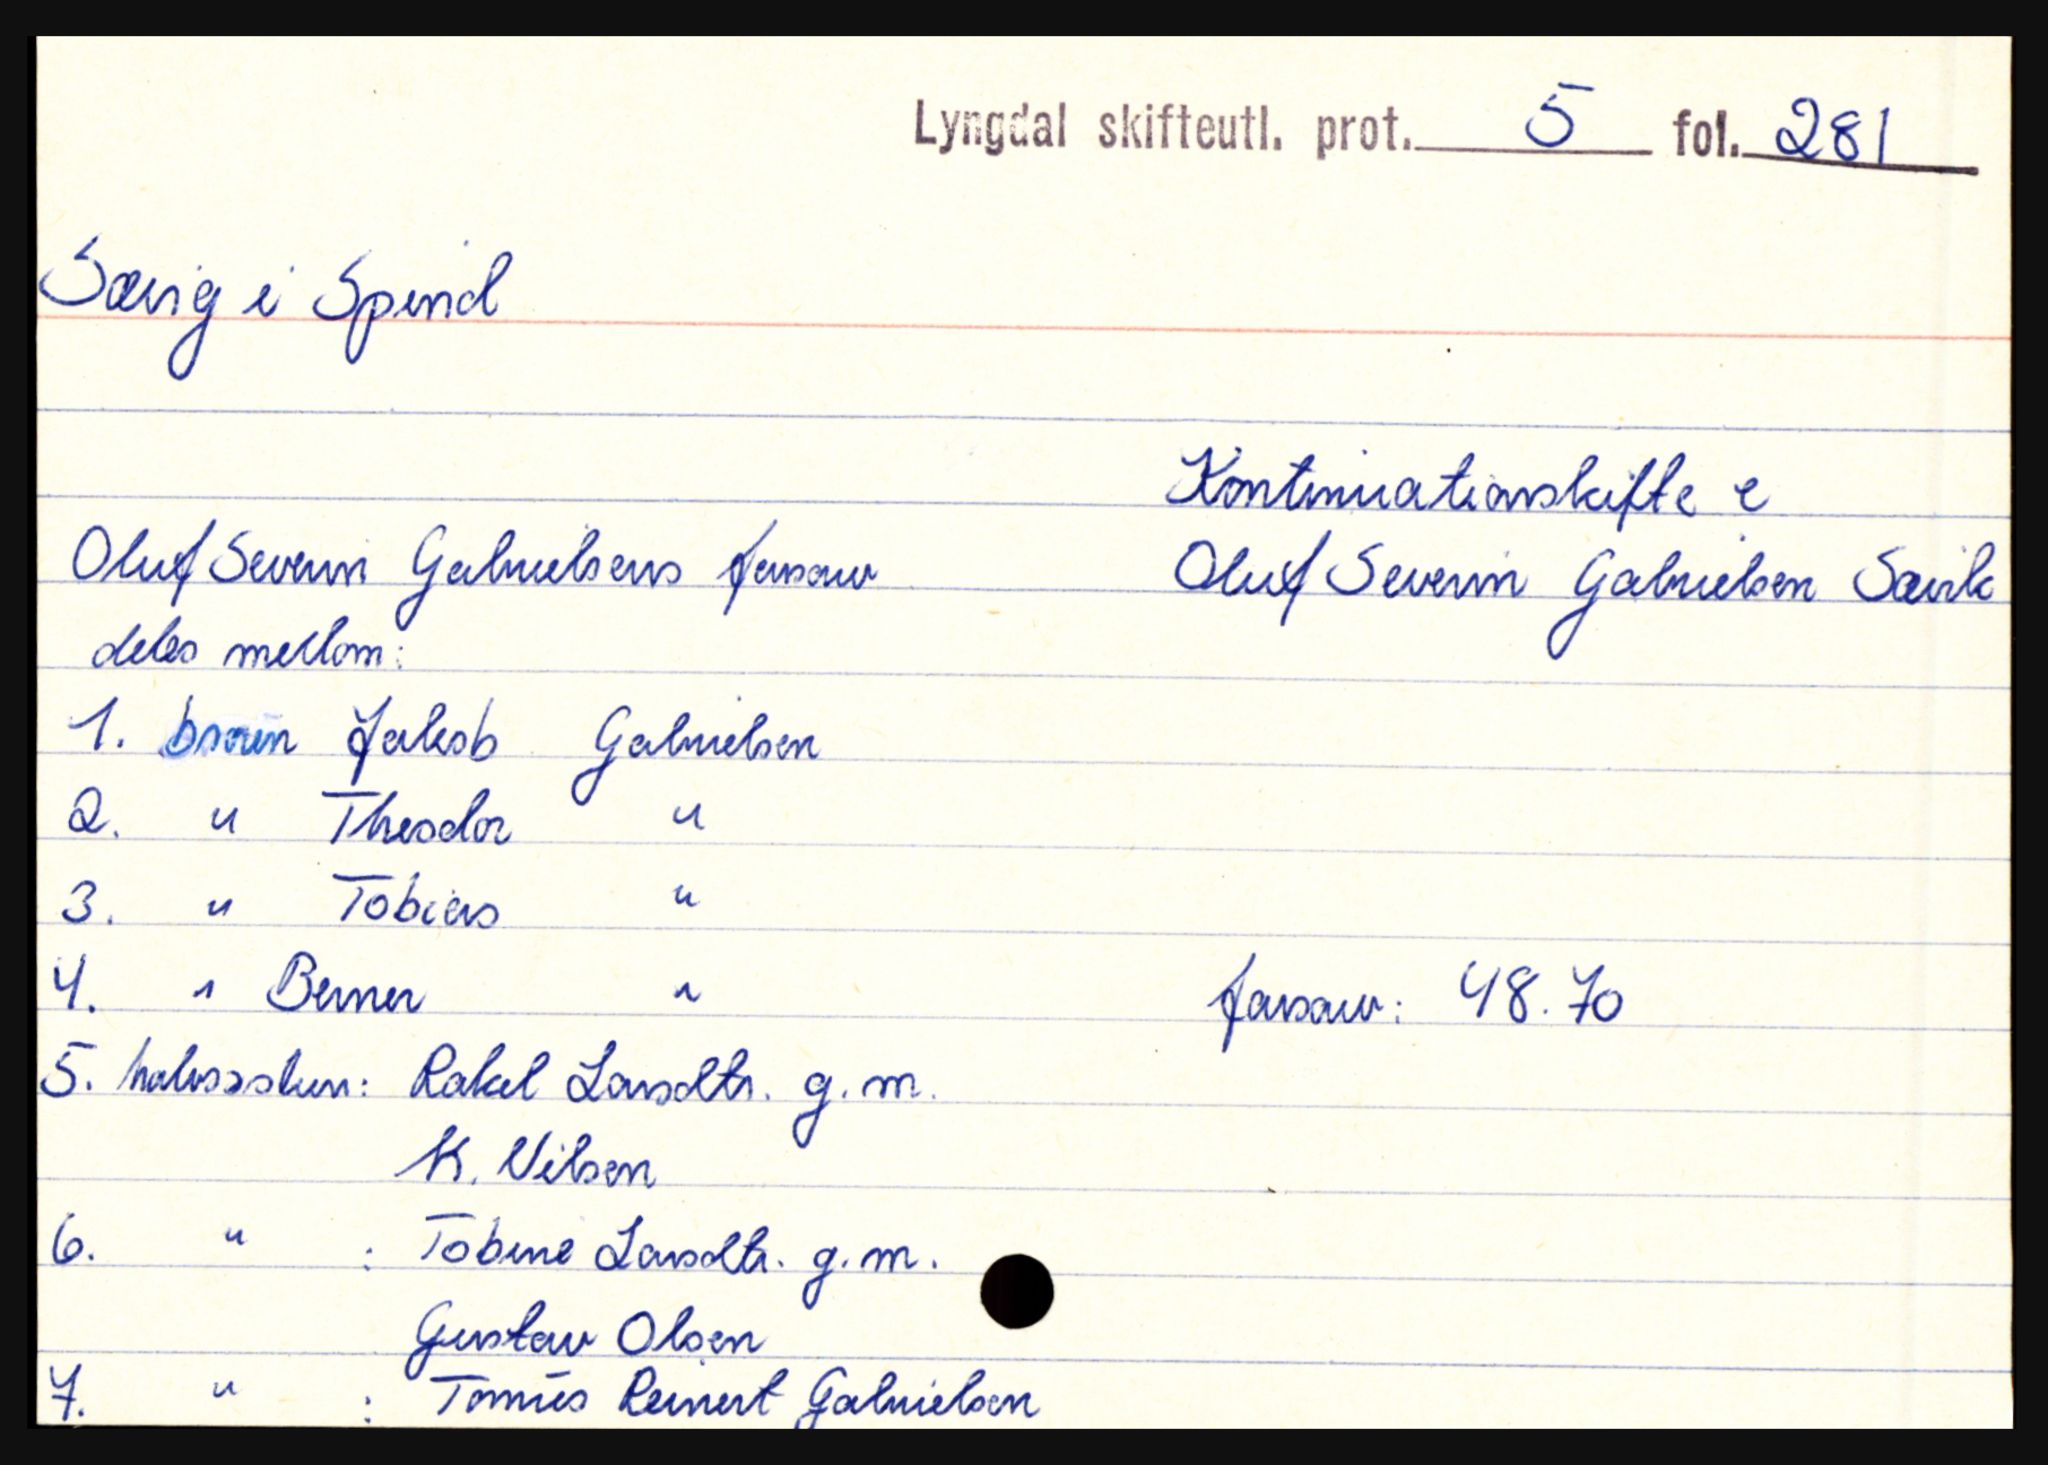 Lyngdal skifteutl. prot. 5 fol. 281
Sævig i Spind
Kontinuationskifte e
Oluf Severin Gabrielsen Sævik
Oluf Severin Gabrielsens farsarv
deles mellom:
1. broren Jakob Gabrielsen
2. " Theodor "
3. " Tobias "
4. " Berner " farsarv: 48.70
5. halvsøsken: Rakel Larsdtr. g.m.
K. Nilsen
6. " : Tobine Larsdtr. g.m.
Gustav Olsen
7. " : Tomies Reinert Gabrielsen